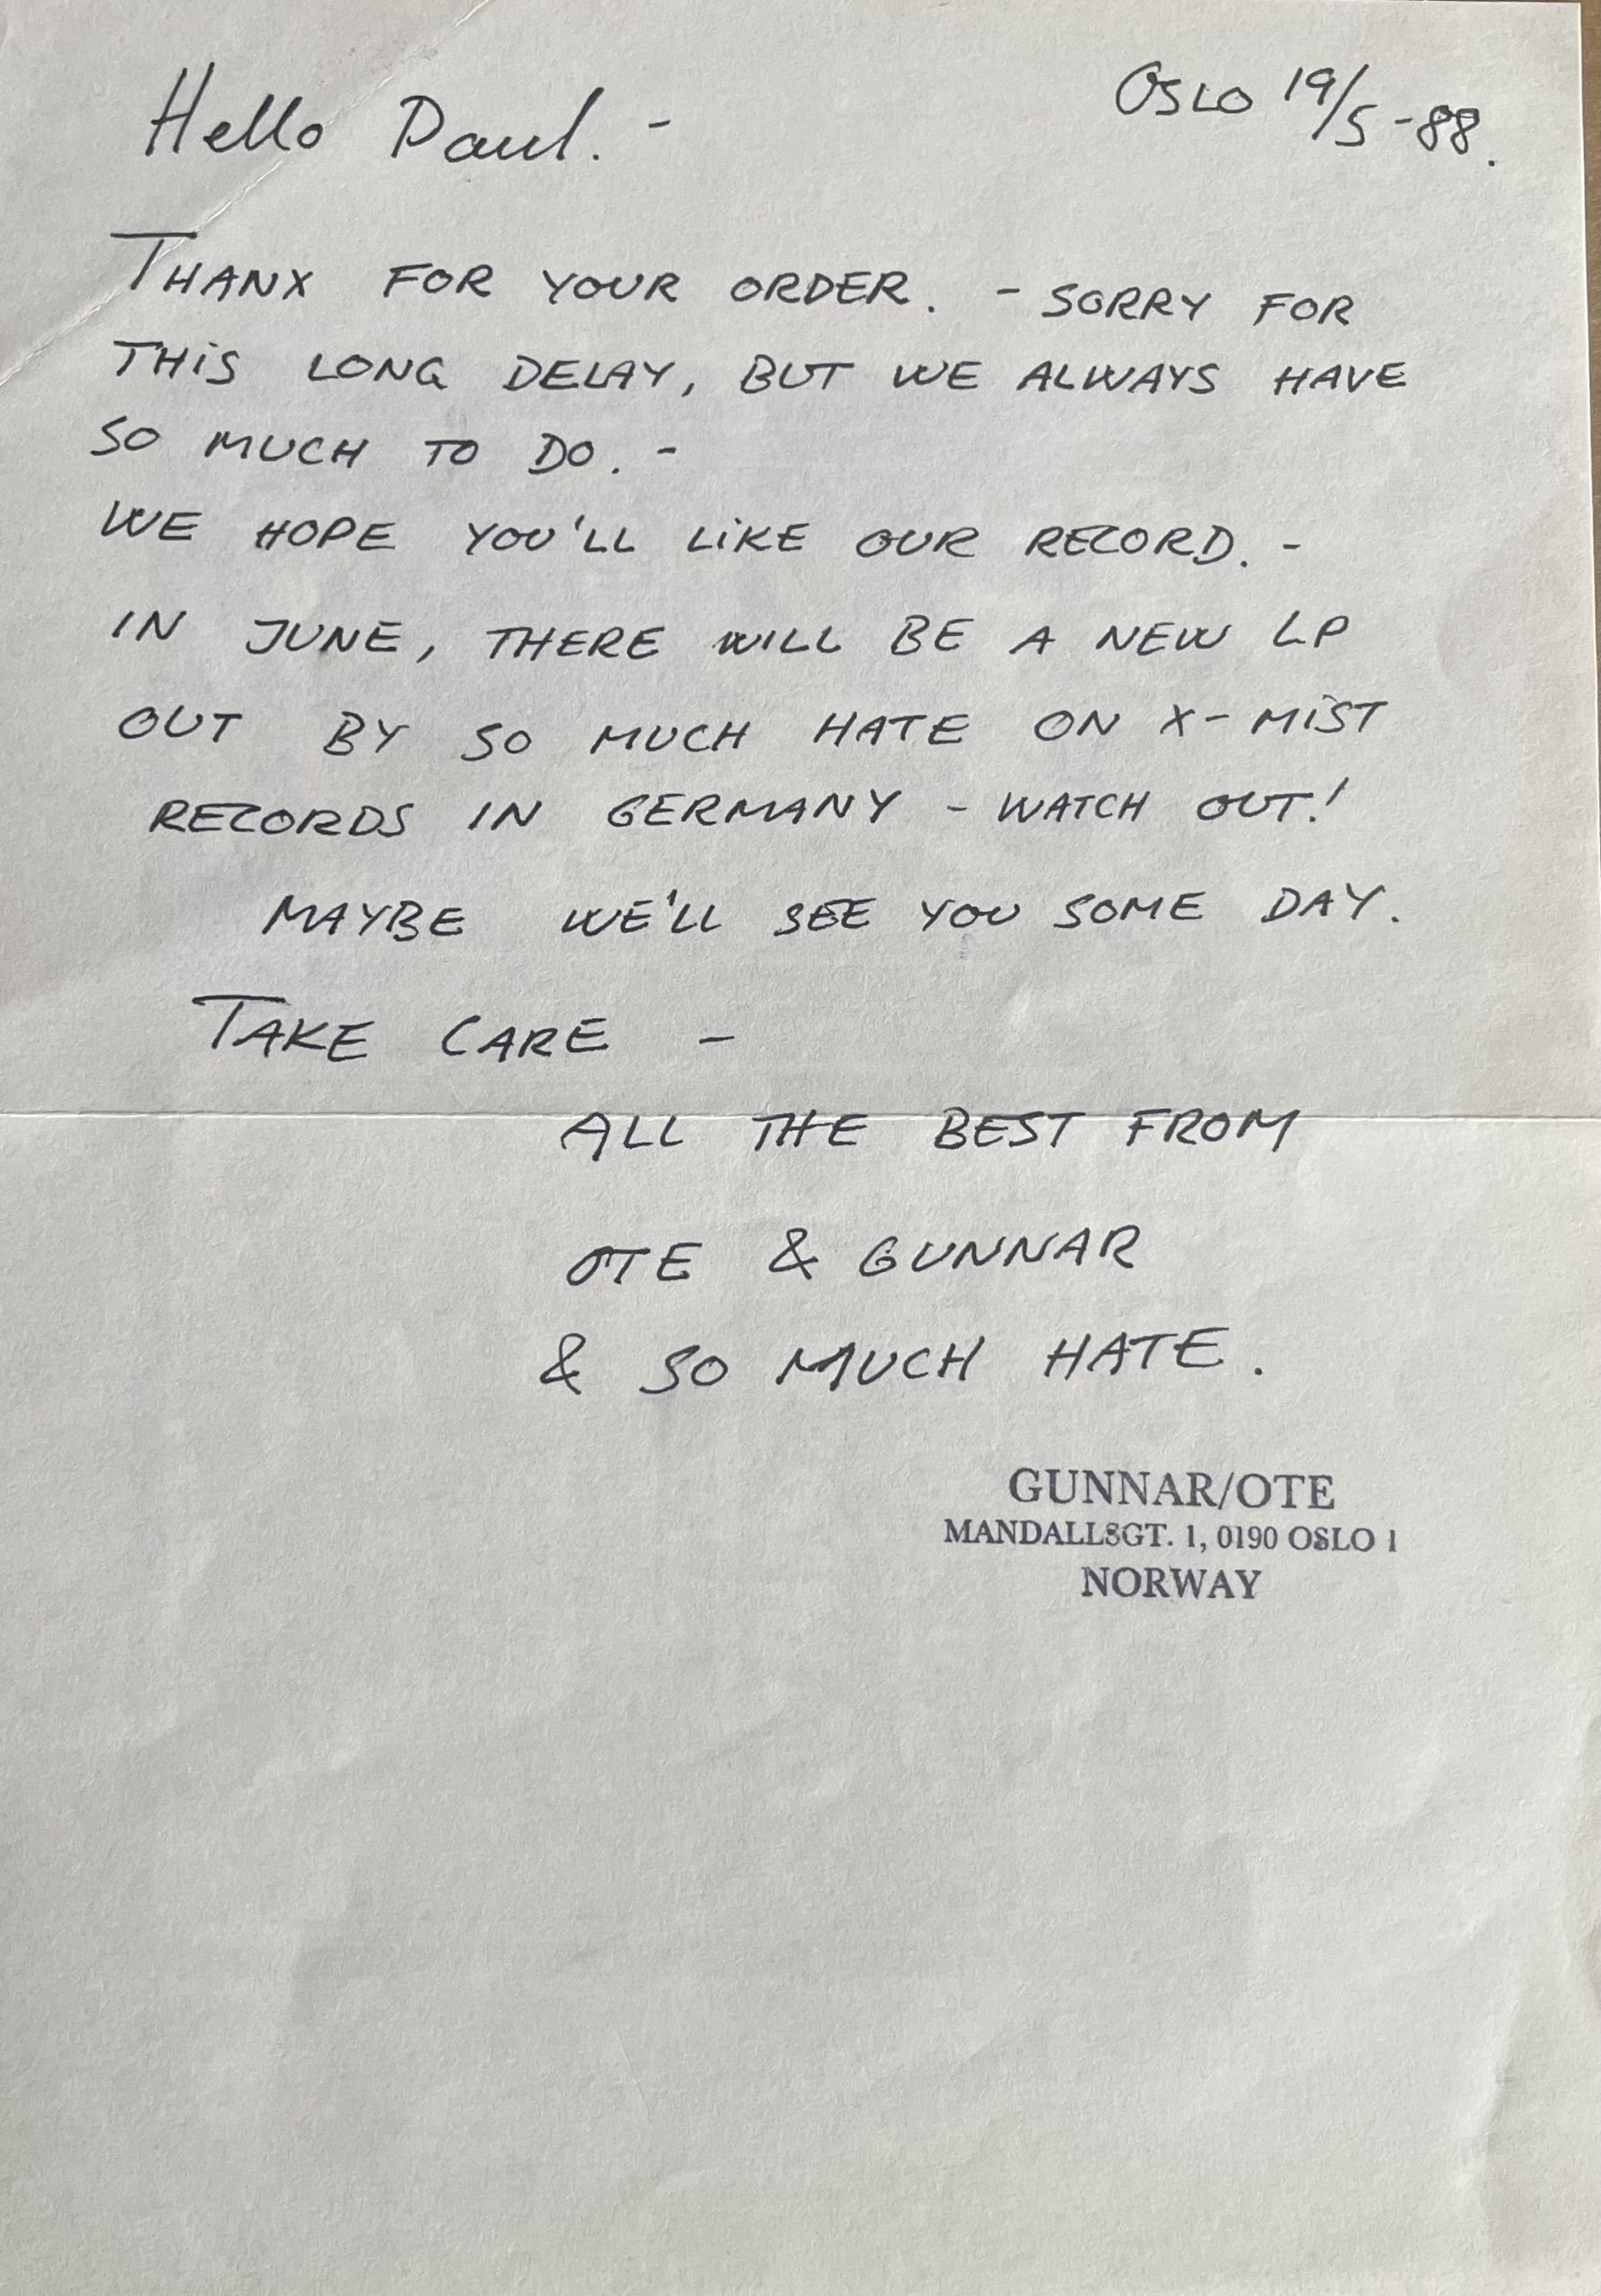 Hello Paul. -
OSLO 19/5 -88.
THANX FOR YOUR ORDER. - SORRY FOR
THIS LONG DELAY, BUT WE ALWAYS HAVE
SO MUCH TO DO. -
WE HOPE YOU'LL LIKE OUR RECORD. -
IN JUNE, THERE WILL BE A NEW LP
OUT BY SO MUCH HATE ON X-MIST
RECORDS IN GERMANY - WATCH OUT!
MAYBE WE'LL SEE YOU SOME DAY.
TAKE CARE -
ALL THE BEST FROM
OTE & GUNNAR
& SO MUCH HATE.
GUNNAR/OTE
MANDALLSGT. 1, 0190 OSLO 1
NORWAY